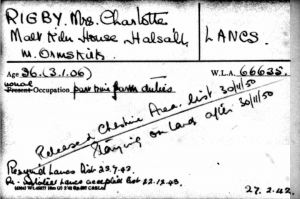 RIGBY, Mrs. Charlotte
Malt Kiln House Halsall,
Nr. Ormskirk
LANCS.
Age 36. (3.1.06)
W.L.A. 66635.
usual
Present Occupation. part time farm duties
Released Cheshire Area list 30/11/50
Staying on land after 30/11/50
Resigned Lancs list 22.9.43.
Re-enrolled Lancs accepted list 22.12.43.
27.2.42.